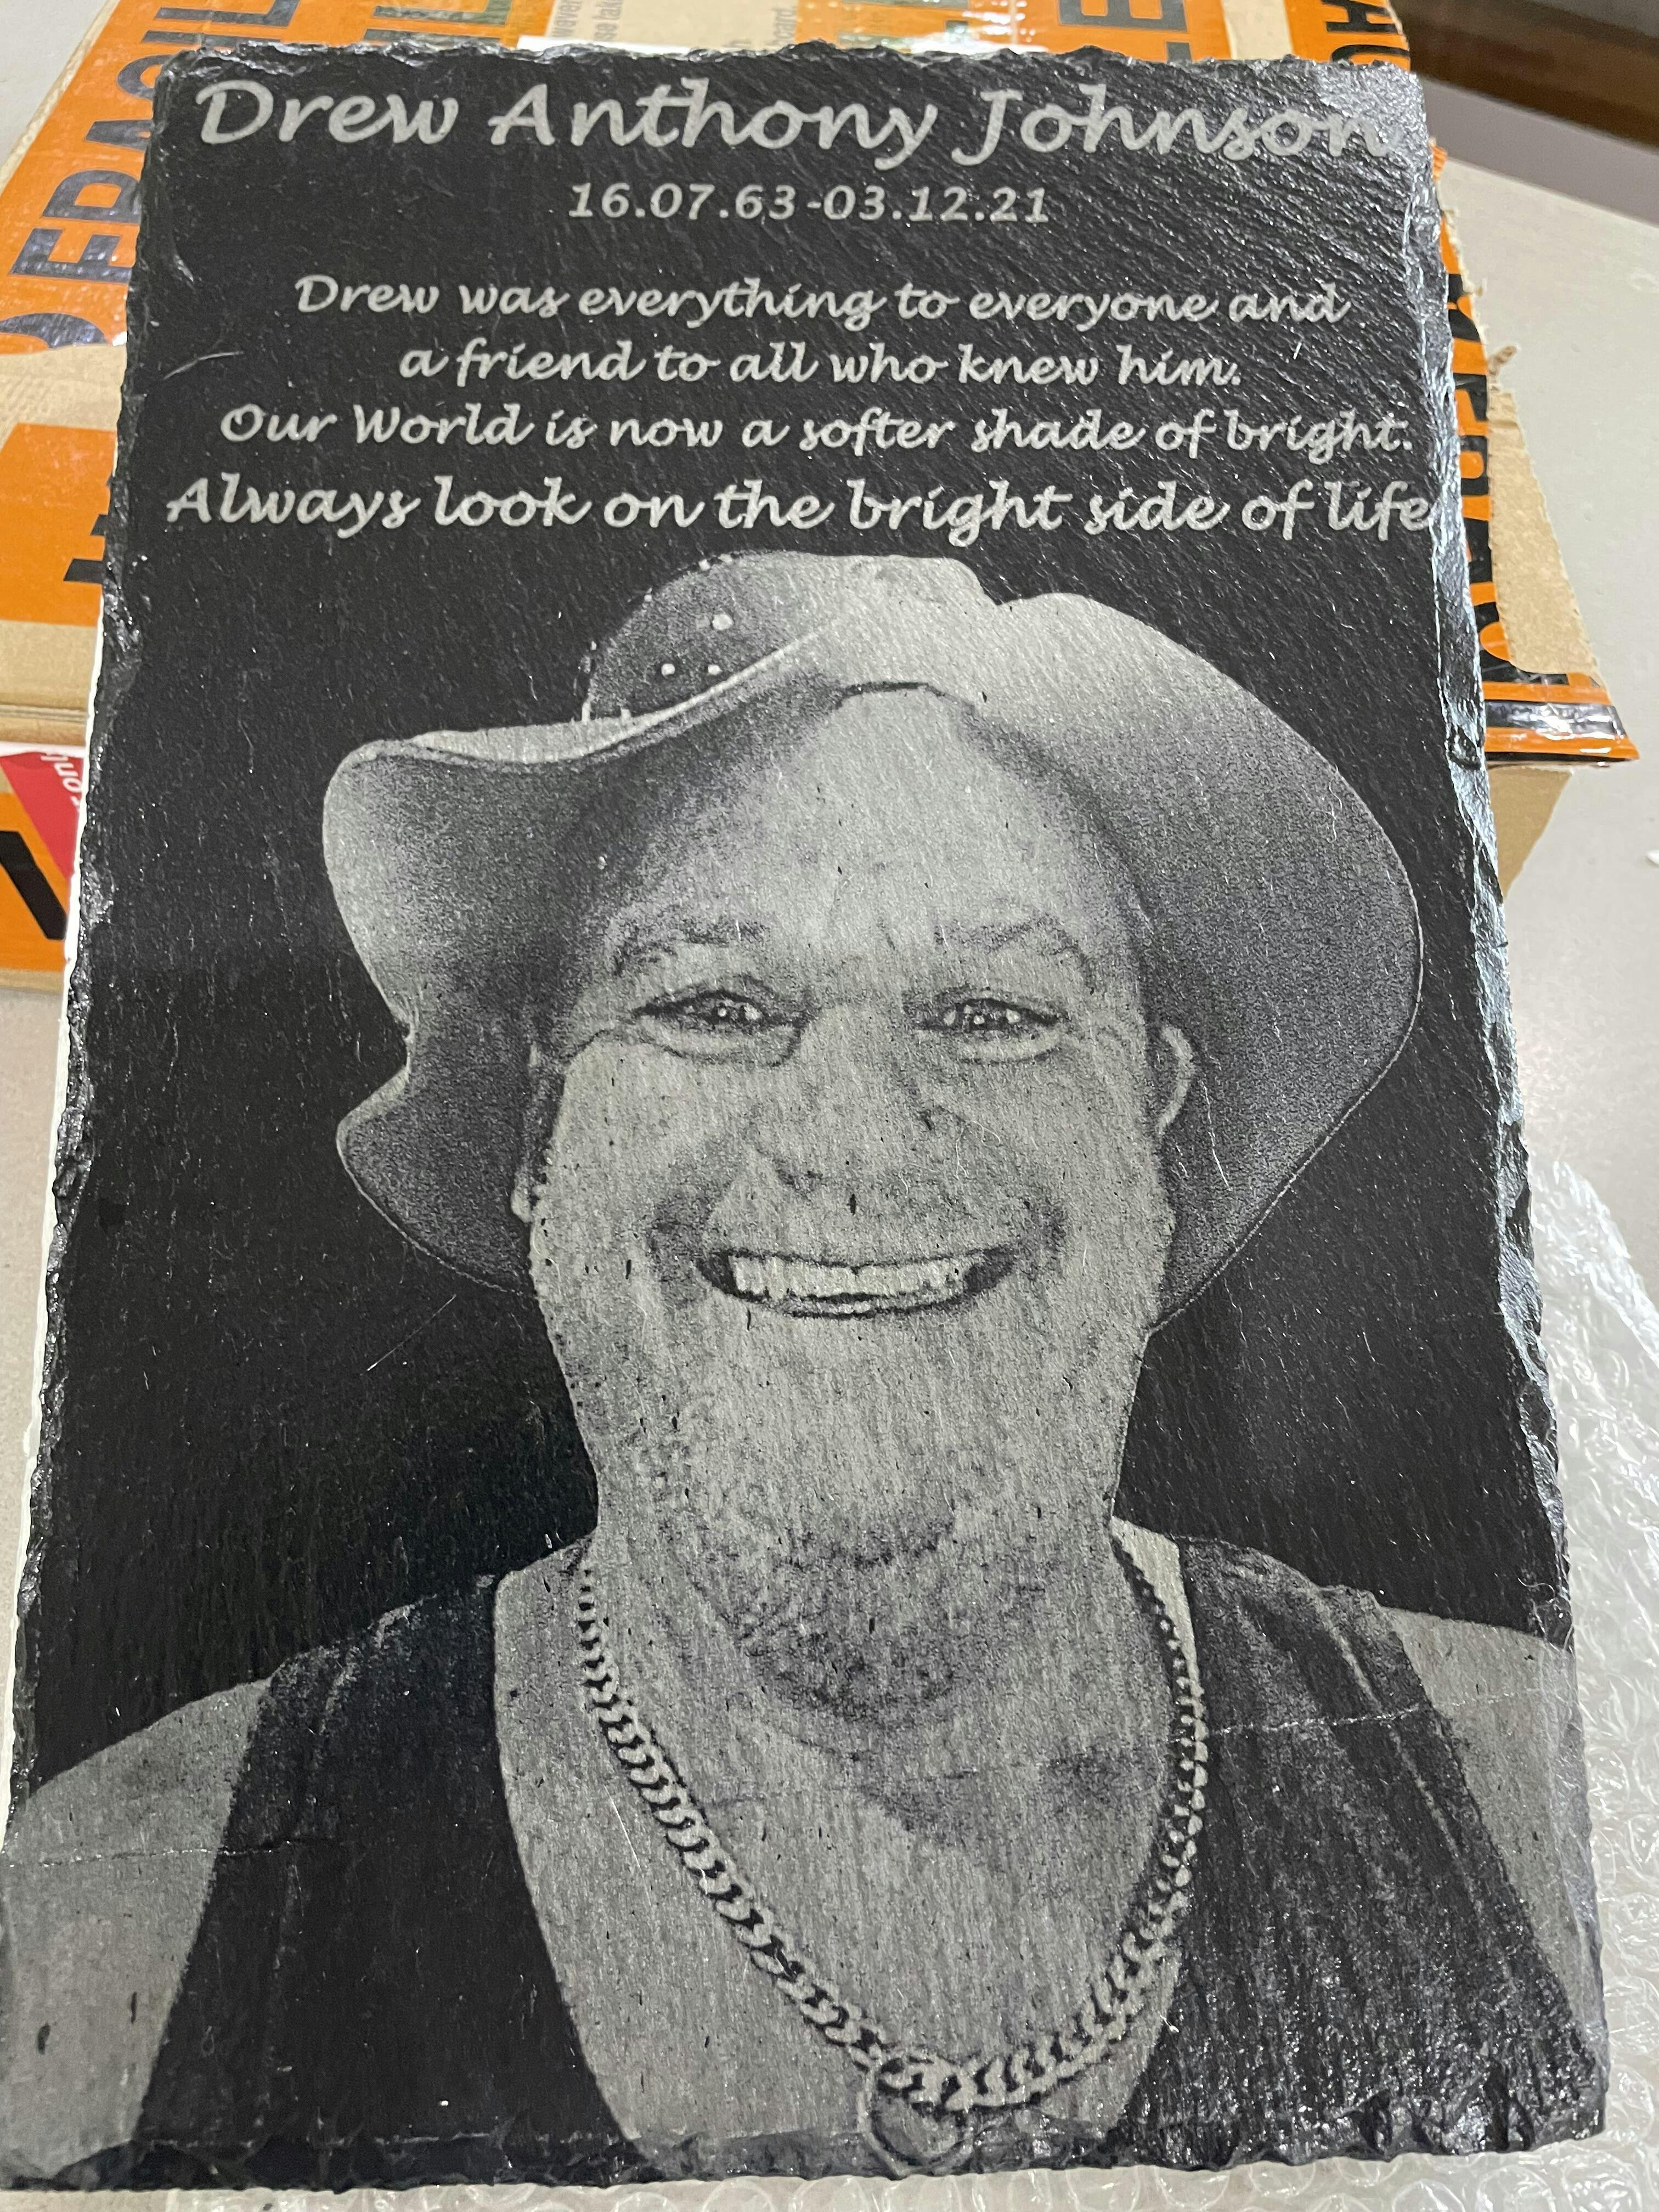 Drew Anthony Johnson
16.07.63-03.12.21
Drew was everything to everyone and
a friend to all who knew him.
Our World is now a softer shade of bright.
Always look on the bright side of life